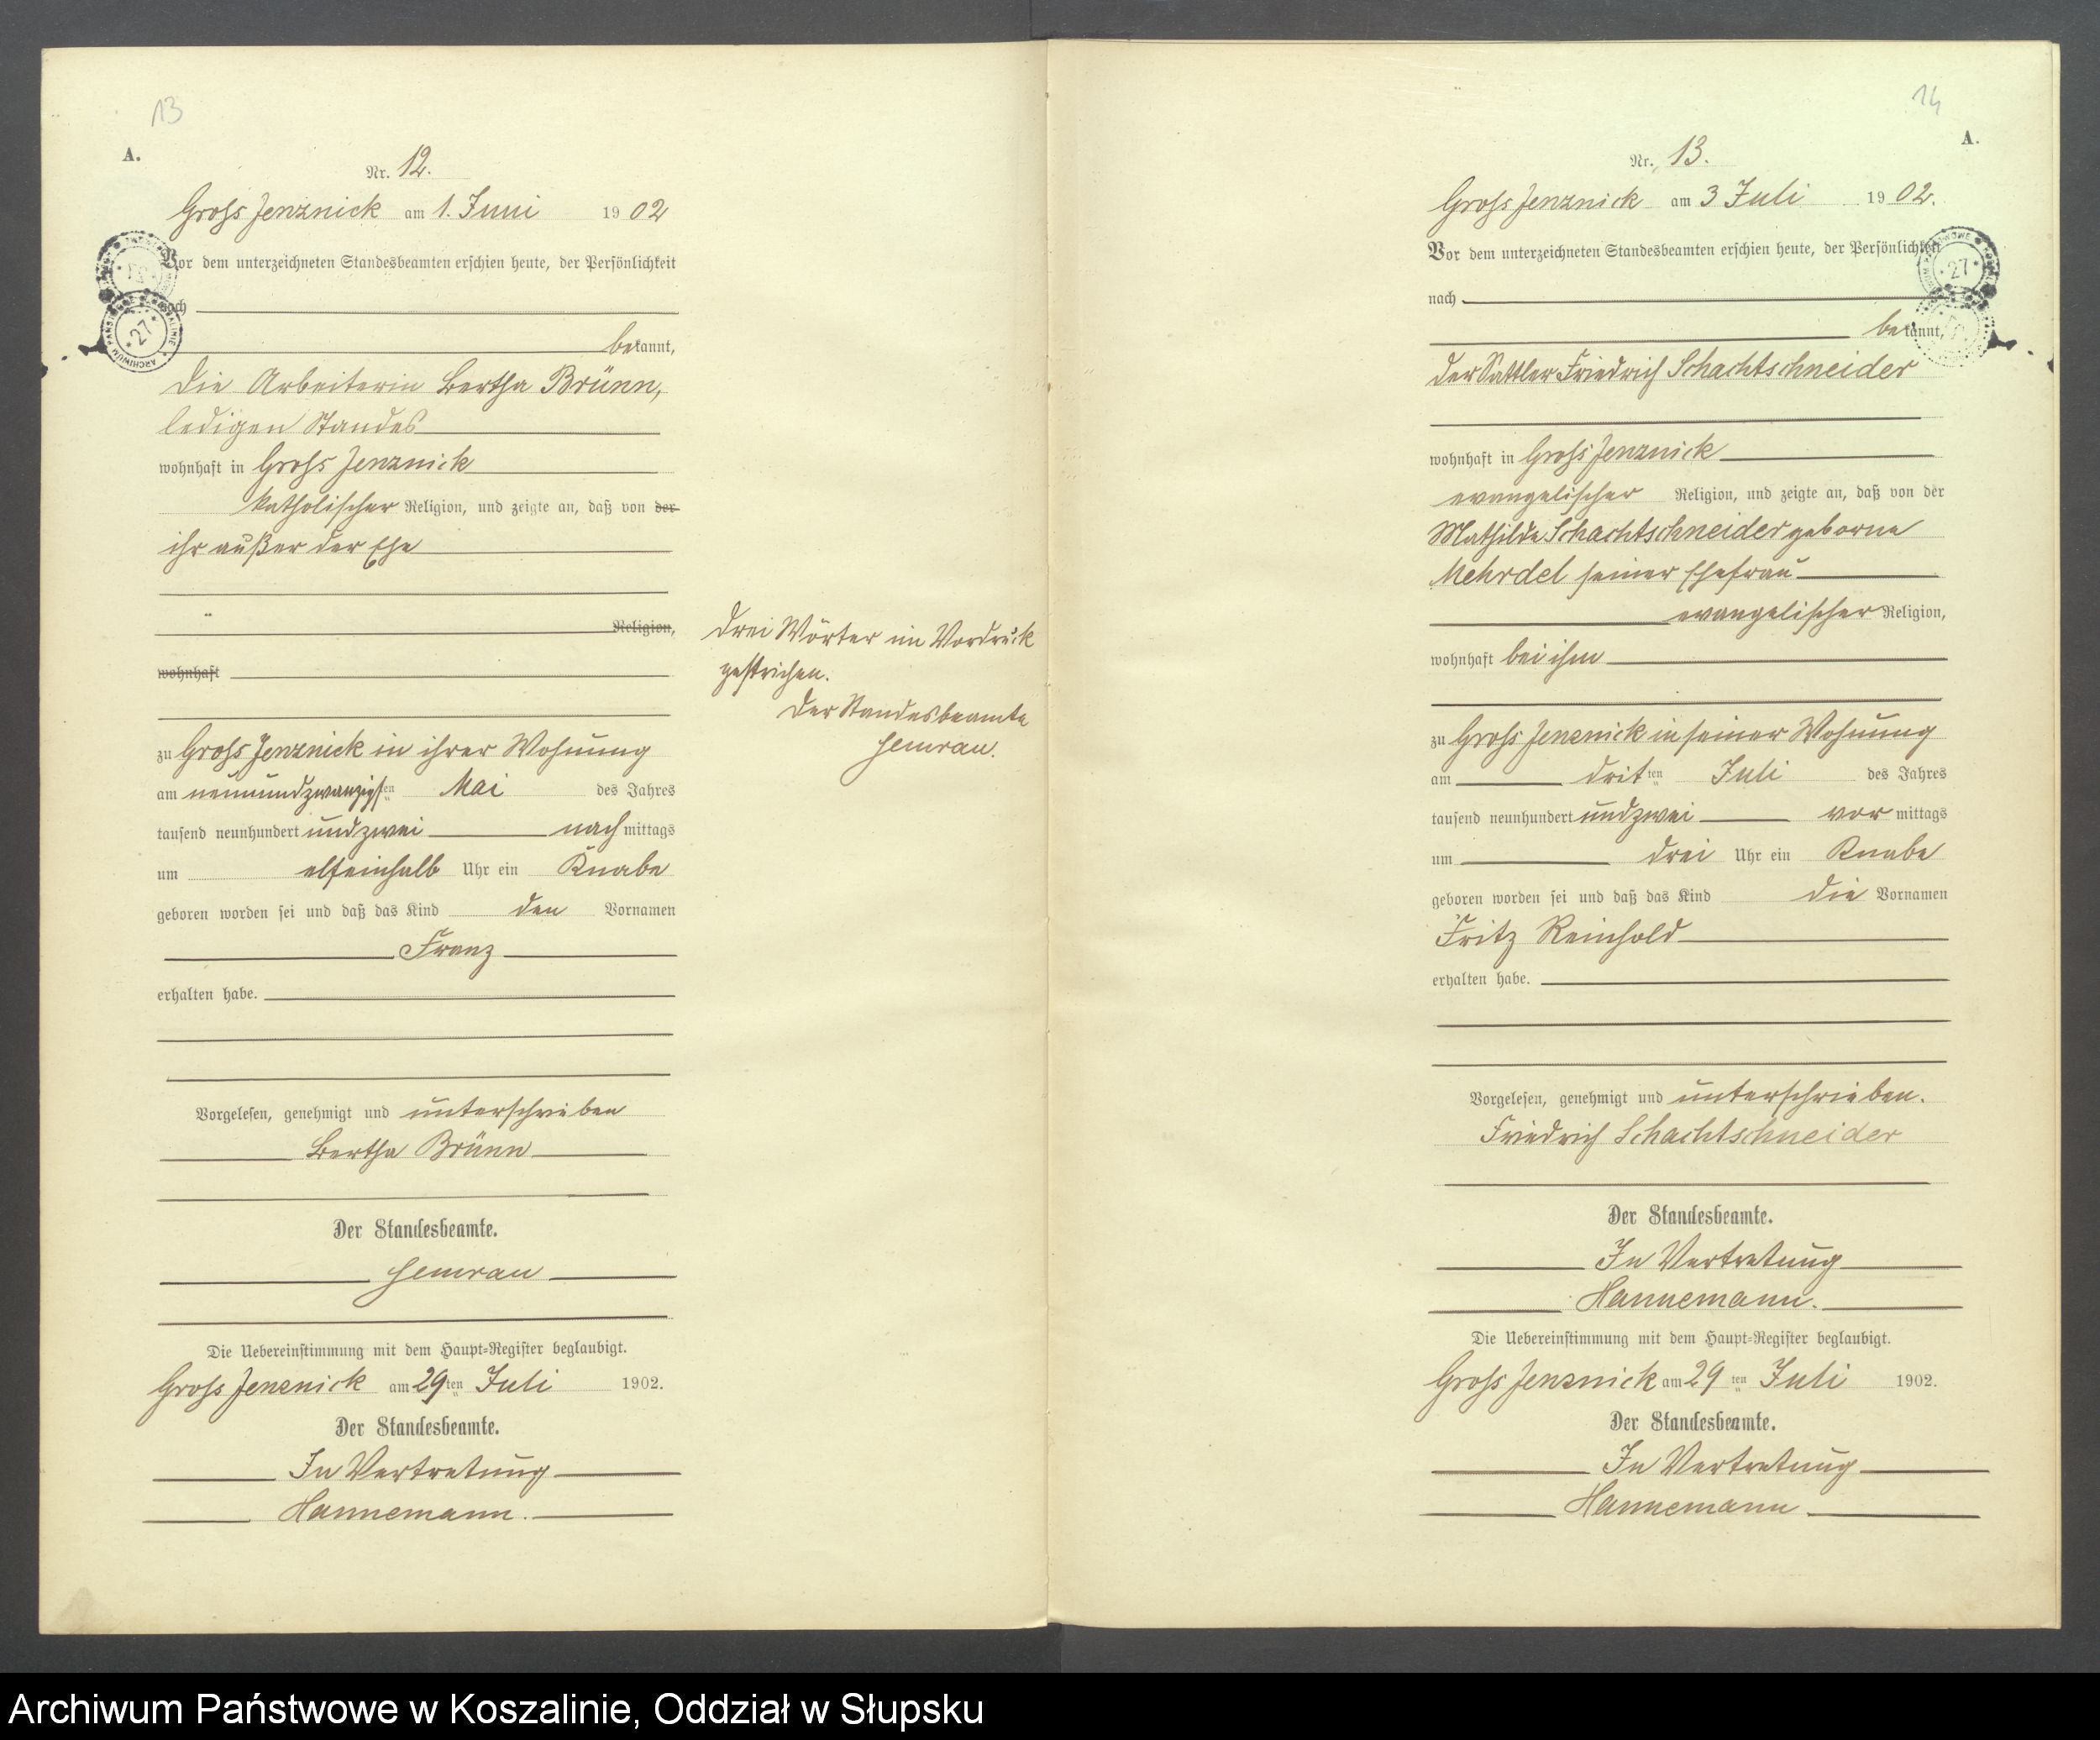 13
A.
Nr. 12.
Groß Jenznick am 1. Juni 1902
Vor dem unterzeichneten Standesbeamten erschien heute, der Persönlichkeit
nach
bekannt,
die Arbeiterin Bertha Brünn,
ledigen Standes
wohnhaft in Groß Jenznick
katholischer Religion, und zeigte an, daß von der
ihr außer der Ehe
Religion,
wohnhaft
drei Wörter im Vordruck
gestrichen.
Der Standesbeamte
Hemrau.
zu Groß Jenznick in ihrer Wohnung
am neunundzwanzigsten Mai des Jahres
tausend neunhundert und zwei nachmittags
um elfeinhalb Uhr ein Knabe
geboren worden sei und daß das Kind den Vornamen
Franz
erhalten habe.
Vorgelesen, genehmigt und unterschrieben
Bertha Brünn
Der Standesbeamte.
Hemrau
Die Uebereinstimmung mit dem Haupt-Register beglaubigt.
Groß Jenznick am 29ten Juli 1902.
Der Standesbeamte.
In Vertretung
Hannemann.
14
A.
Nr. 13.
Groß Jenznick am 3 Juli 1902.
Vor dem unterzeichneten Standesbeamten erschien heute, der Persönlichkeit
nach
bekannt,
der Sattler Friedrich Schachtschneider
wohnhaft in Groß Jenznick
evangelischer Religion, und zeigte an, daß von der
Mathilde Schachtschneider geborne
Mehrdel seiner Ehefrau
evangelischer Religion,
wohnhaft bei ihm
zu Groß Jenznick in seiner Wohnung
am dritten Juli des Jahres
tausend neunhundert und zwei vormittags
um drei Uhr ein Knabe
geboren worden sei und daß das Kind die Vornamen
Fritz Reinhold
erhalten habe.
Vorgelesen, genehmigt und unterschrieben.
Friedrich Schachtschneider
Der Standesbeamte.
In Vertretung
Hannemann.
Die Uebereinstimmung mit dem Haupt-Register beglaubigt.
Groß Jenznick am 29ten Juli 1902.
Der Standesbeamte.
In Vertretung
Hannemann.
Archiwum Państwowe w Koszalinie, Oddział w Słupsku